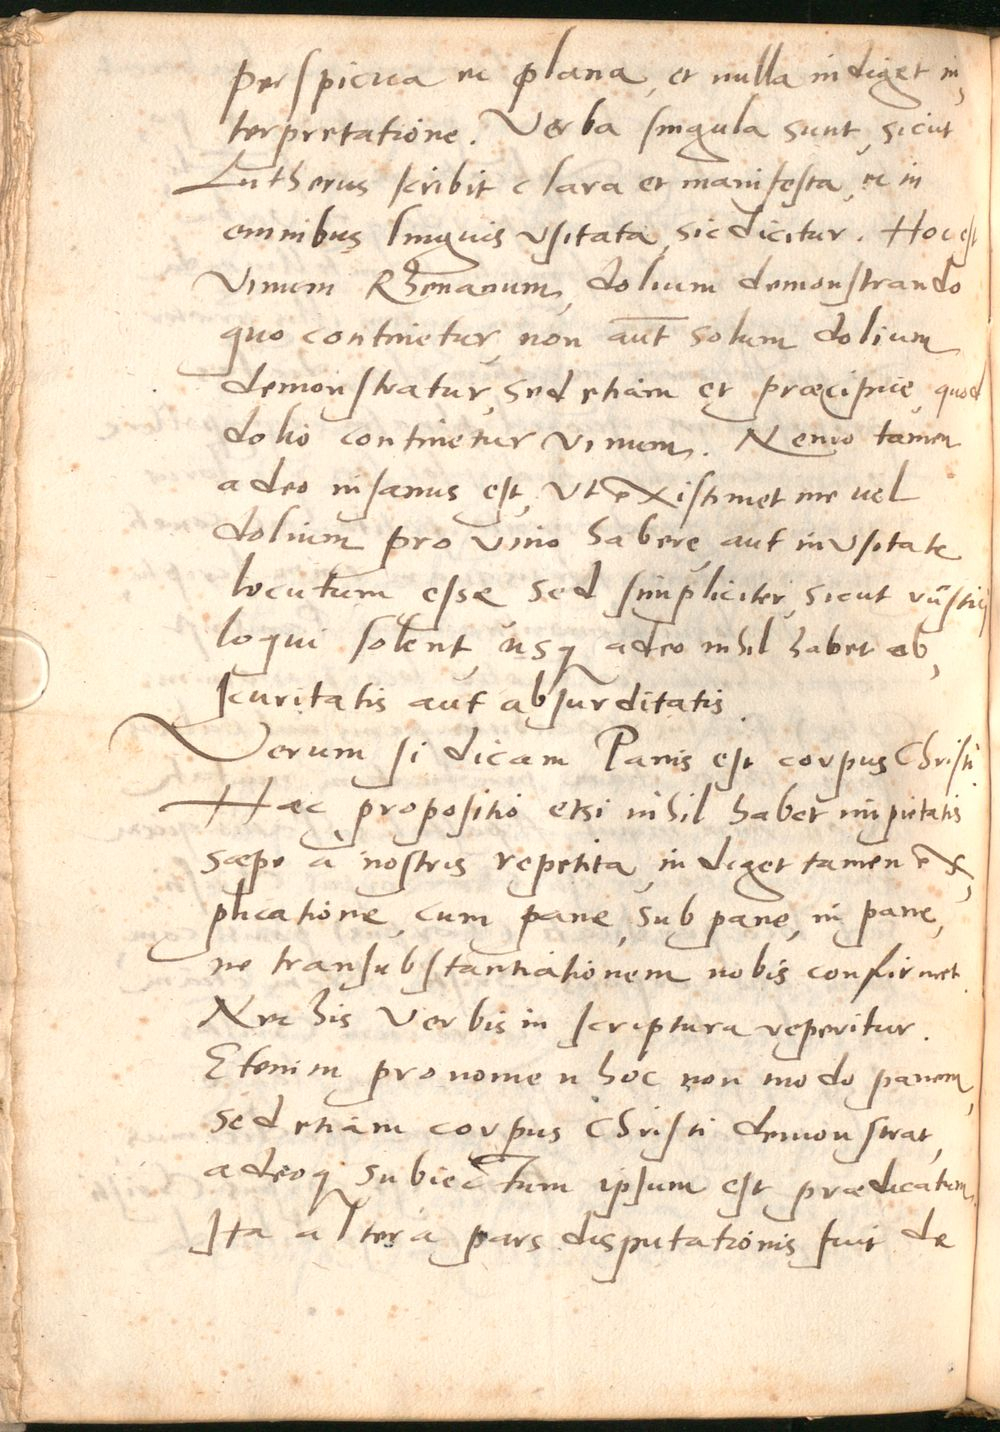 perspicua ac plana, et nulla indiget in,
terpretatione. Verba singula sunt, sicut
Lutherus scribit clara et manifesta, ac in
omnibus linguis vsitata, sic dicitur. Hoc est
Vinum Rhenanum, dolium demonstrando
quo continetur, non aut̄ solum dolium
demonstratur, sed etiam et præcipue, quod
dolio continetur vinum. Nemo tamen
adeo insanus est, vt existimet me uel
dolium pro vino habere, aut inusitate
locutum esse sed simpliciter, sicut rustici
loqui solent, usq adeo nihil habet ob,
scuritatis aut absurditatis.
Verum si dicam Panis est corpus Christi.
Hæc propositio etsi nihil habet impietatis
sæpe à nostris repetita, indiget tamen ex,
plicatione, cum pane, sub pane, in pane,
ne transubstantiationem nobis confirmet.
Nec his verbis in scriptura reperitur.
Etenim pronomen hoc non modo panem,
sed etiam corpus Christi demonstrat,
adeoq subiectum ipsum est prædicatum.
Ita altera pars disputationis fuit de